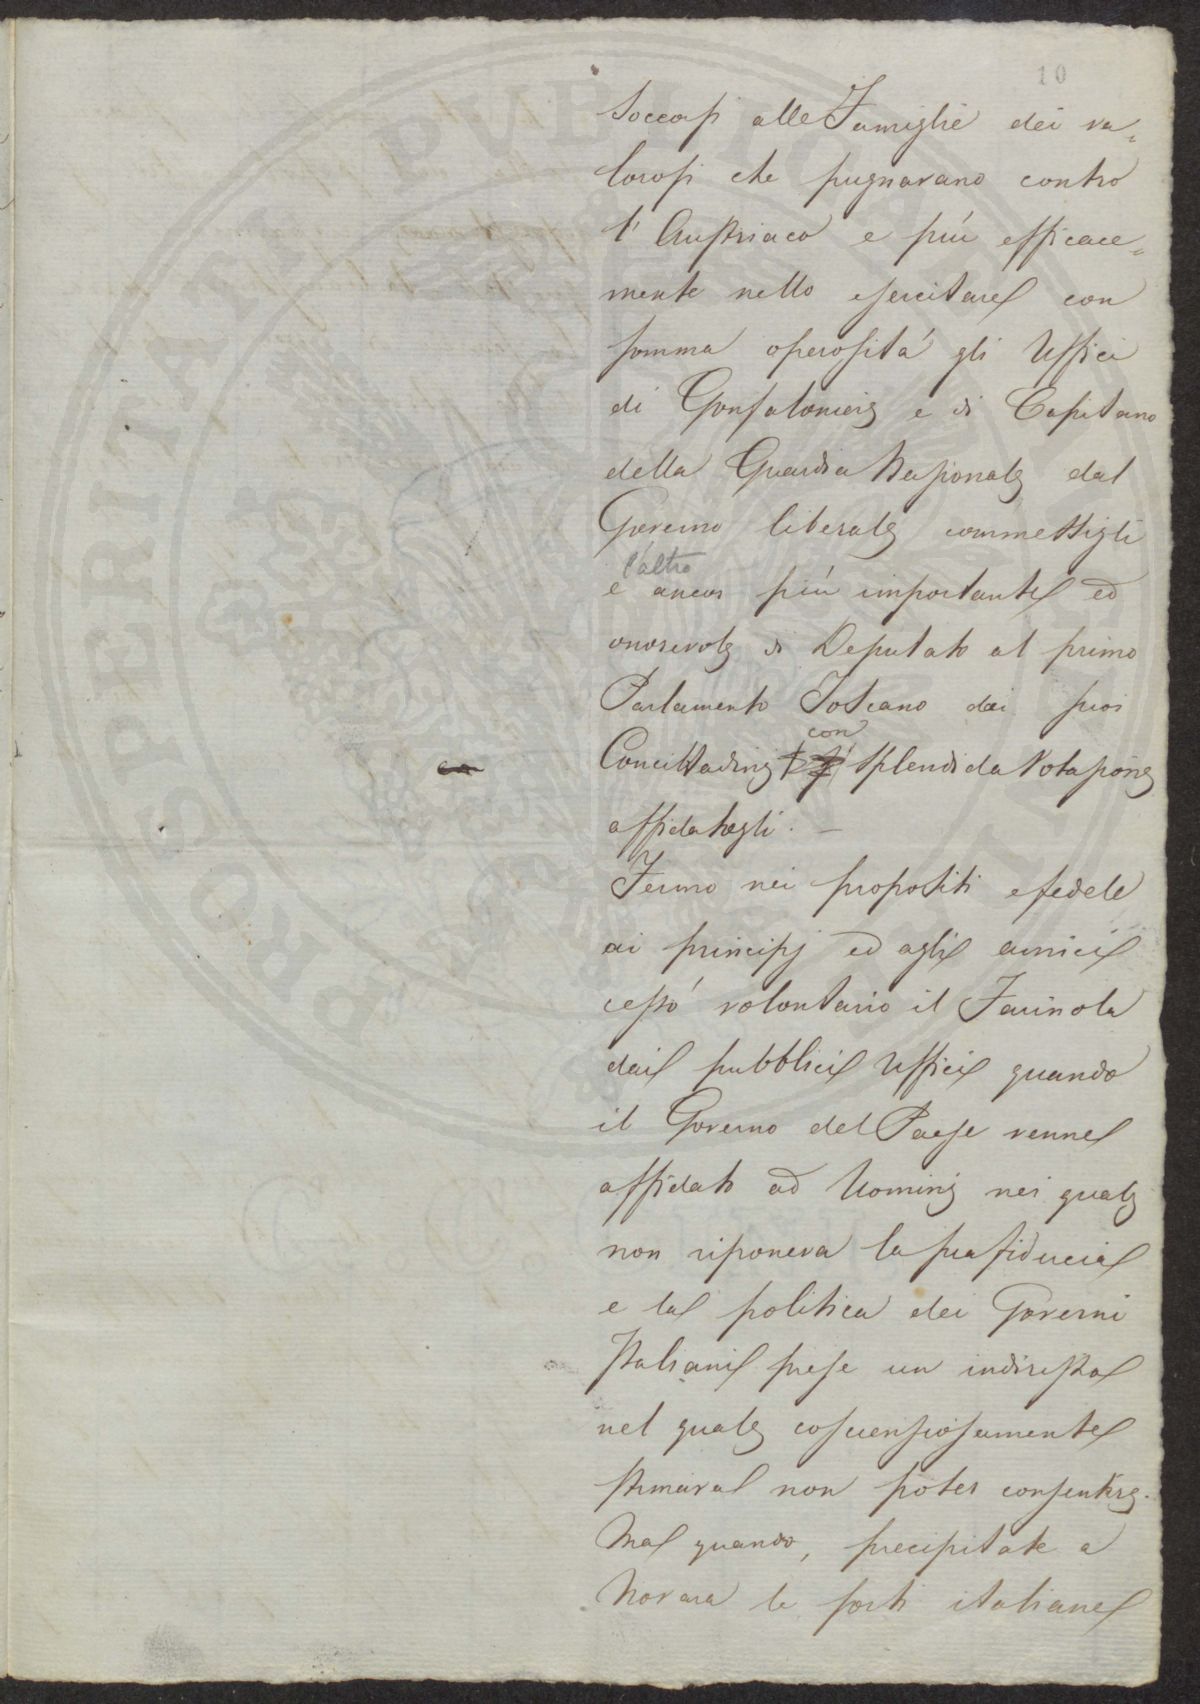 10
Soccorsi alle Famiglie dei va-
lorosi che pugnavano contro
l'Austriaco e più efficace-
mente nello esercitare con
somma operosità gli Uffici
di Gonfaloniere e di Capitano
della Guardia Nazionale dal
Governo liberale commessigli
l'altro
e ancor più importante ed
onorevole di Deputato al primo
Parlamento Toscano dai suoi
con
Concittadini splendida Votazione
affidatogli. —
Fermo nei propositi e fedele
ai principj ed agli amici
cessò volontario il Farinola
dai pubblici Uffici quando
il Governo del Paese venne
affidato ad Uomini nei quali
non riponeva la sua fiducia
e la politica dei Governi
Italiani prese un indirizzo
nel quale coscienziosamente
stimava non poter consentire.
Ma quando, precipitate a
Novara le sorti italiane
PRO SUPERNITATE PVBLICA